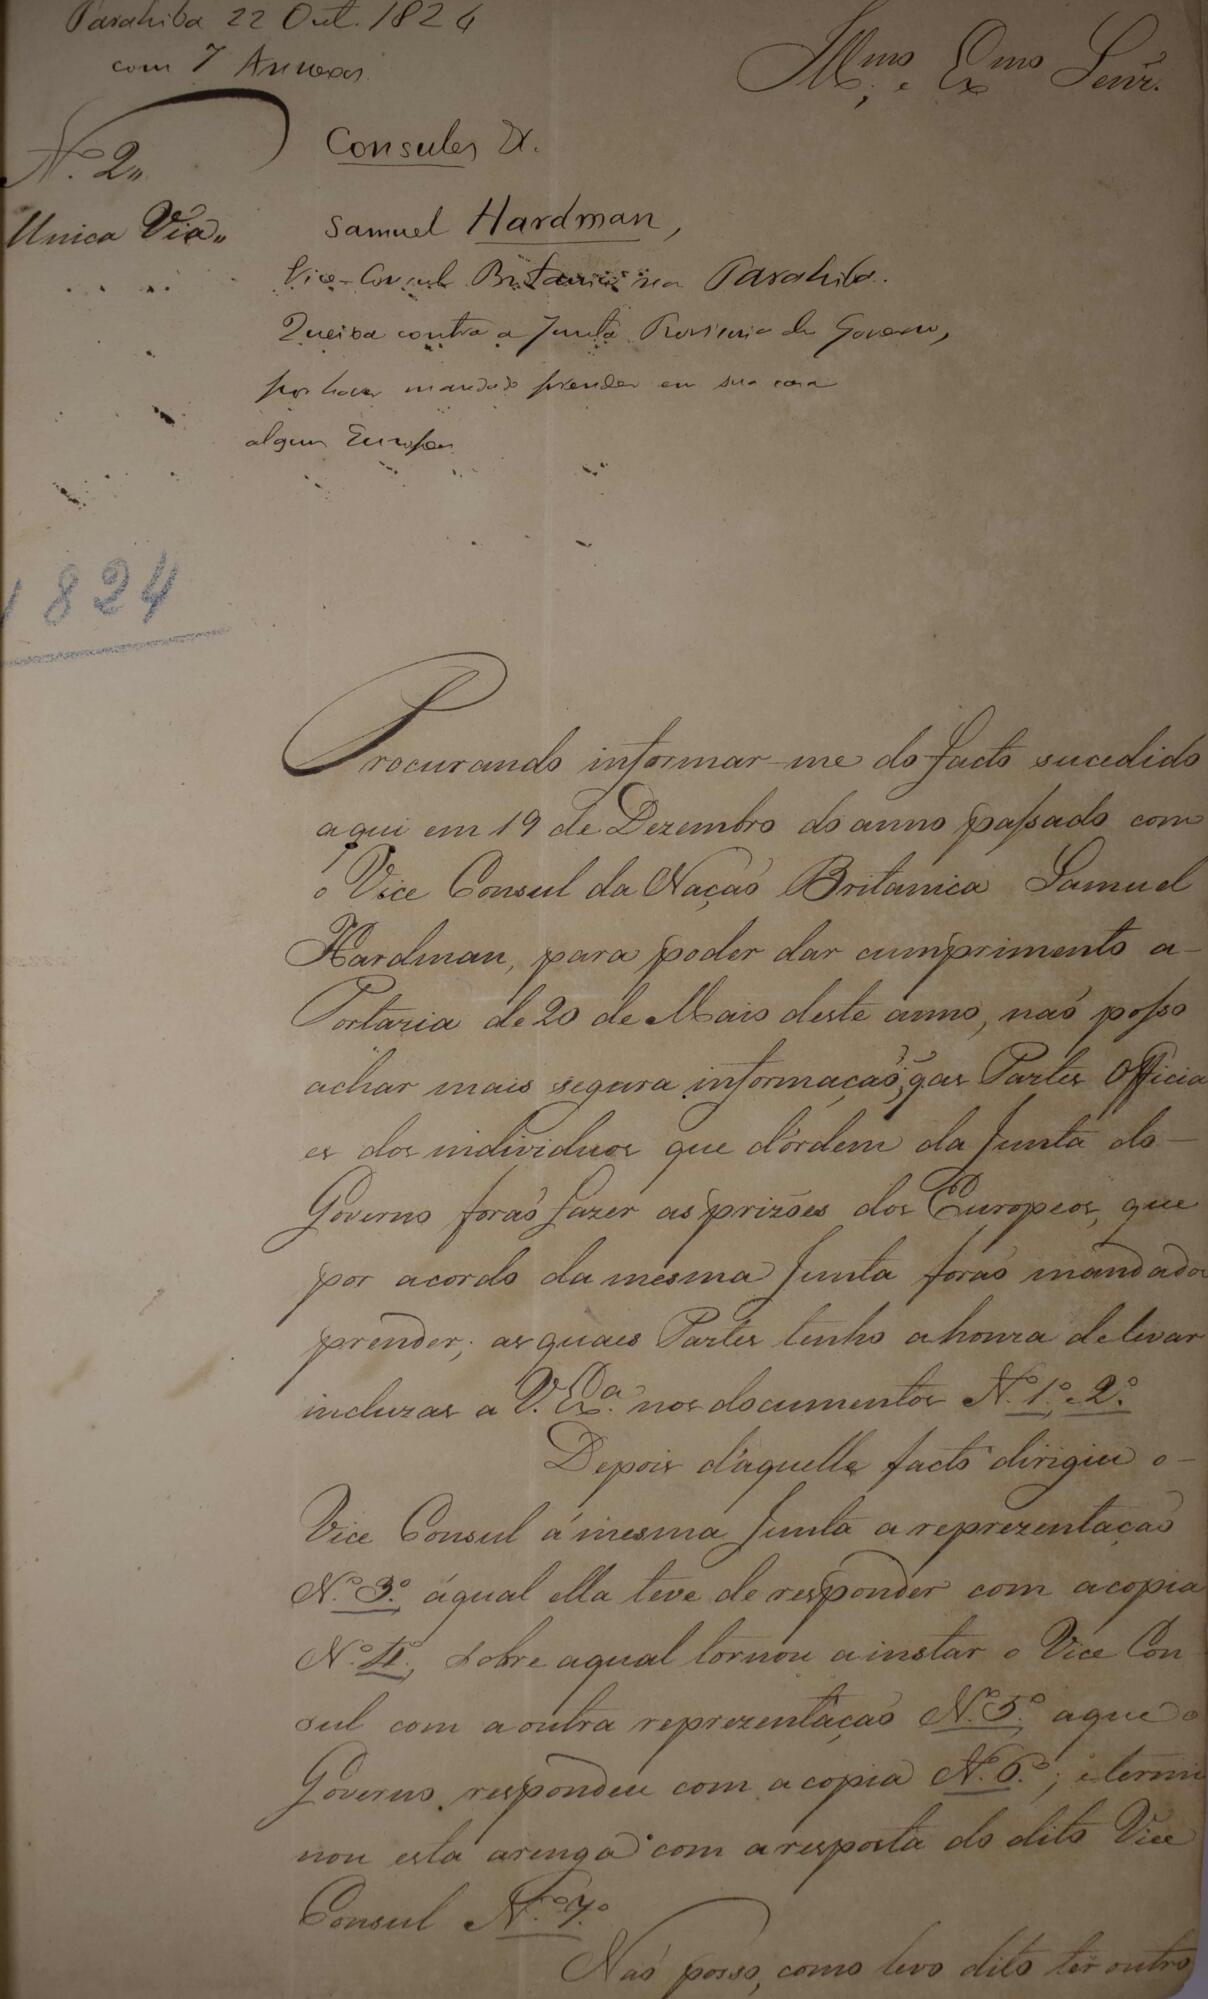 Parahiba 22 Out. 1824
com 7 Annexos.
Illmo. e Exmo Senr.
N. 2„
Unica Via„
Consules
Samuel Hardman,
Vice-Consul Britanico na Parahiba.
Queixa contra a Junta Provisoria do Governo,
por haver mandado prender em sua casa
alguns Europeos
1824
Procurando informar-me do facto sucedido
aqui em 19 de Dezembro do anno passado com
o Vice Consul da Naçaõ Britanica Samuel
Hardman, para poder dar cumprimento a-
Portaria de 20 de Maio deste anno, naõ posso
achar mais segura informaçaõ, q̃ as Partes Officia
es dos individuos que d'órdem da Junta do-
Governo foraõ fazer as prizões dos Europeos, que
por acordo da mesma Junta foraõ mandados
prender; as quaes Partes tenho a honra de levar
incluzas a V. Exa. nos documentos N.º 1.º e 2.º
Depois d'aquelle facto dirigiu o-
Vice Consul á mesma Junta a reprezentaçaõ
N.º 3.º áqual ella teve de responder com a copia
N.º 4.º, sobre aqual tornou a instar o Vice Con
sul com a outra reprezentaçaõ N.º 5.º aque o
Governo respondeu com a copia N.º 6.º; e termi
nou esta arenga com a resposta do dito Vice
Consul N.º 7.º
Naõ posso, como levo dito ter outro